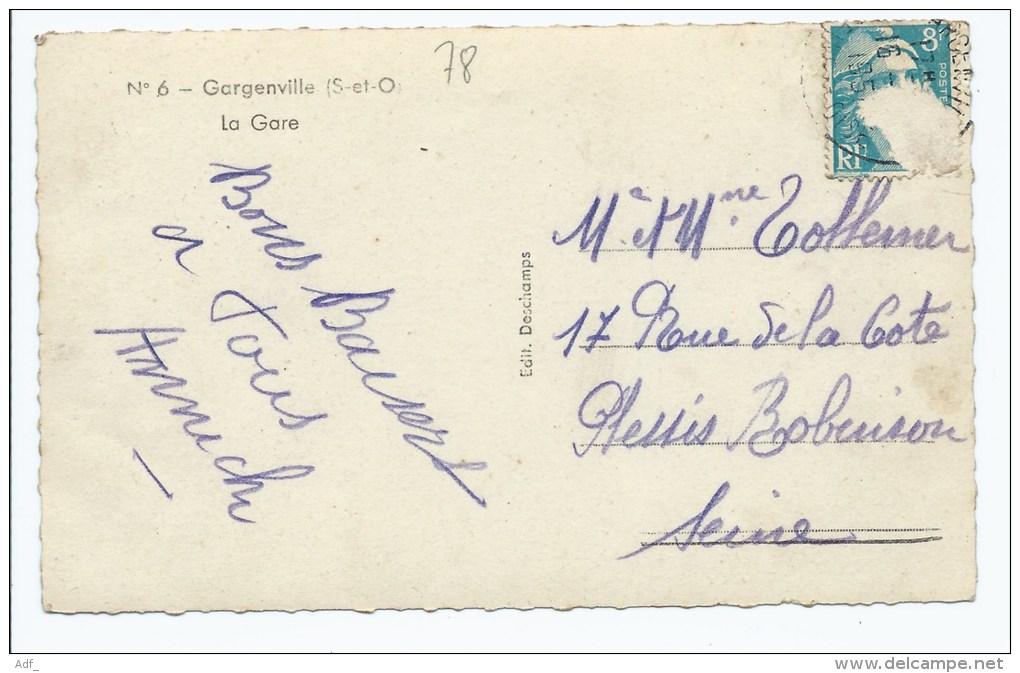 78
N° 6 – Gargenville (S-et-O)
La Gare
8F
POSTES
RF
Bons Baisers
a Tous
Edit. Deschamps
Mr & Mme Tollemer
17 Rue de la Cote
Plessis Robinson
Seine
Adf_
www.delcampe.net